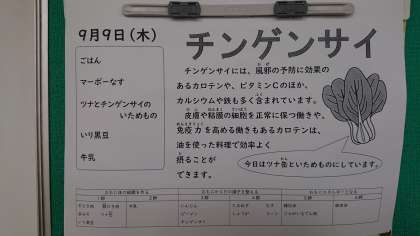 9月9日(木)
チンゲンサイ
ごはん
マーボーなす
ツナとチンゲンサイの
いためもの
いり黒豆
牛乳
チンゲンサイには、風邪の予防に効果の
あるカロテンや、ビタミンCのほか、
カルシウムや鉄も多く含まれています。
皮膚や粘膜の細胞を正常に保つ働きや、
免疫力を高める働きもあるカロテンは、
油を使った料理で効率よく
摂ることが
できます。
今日はツナ缶といためものにしています。